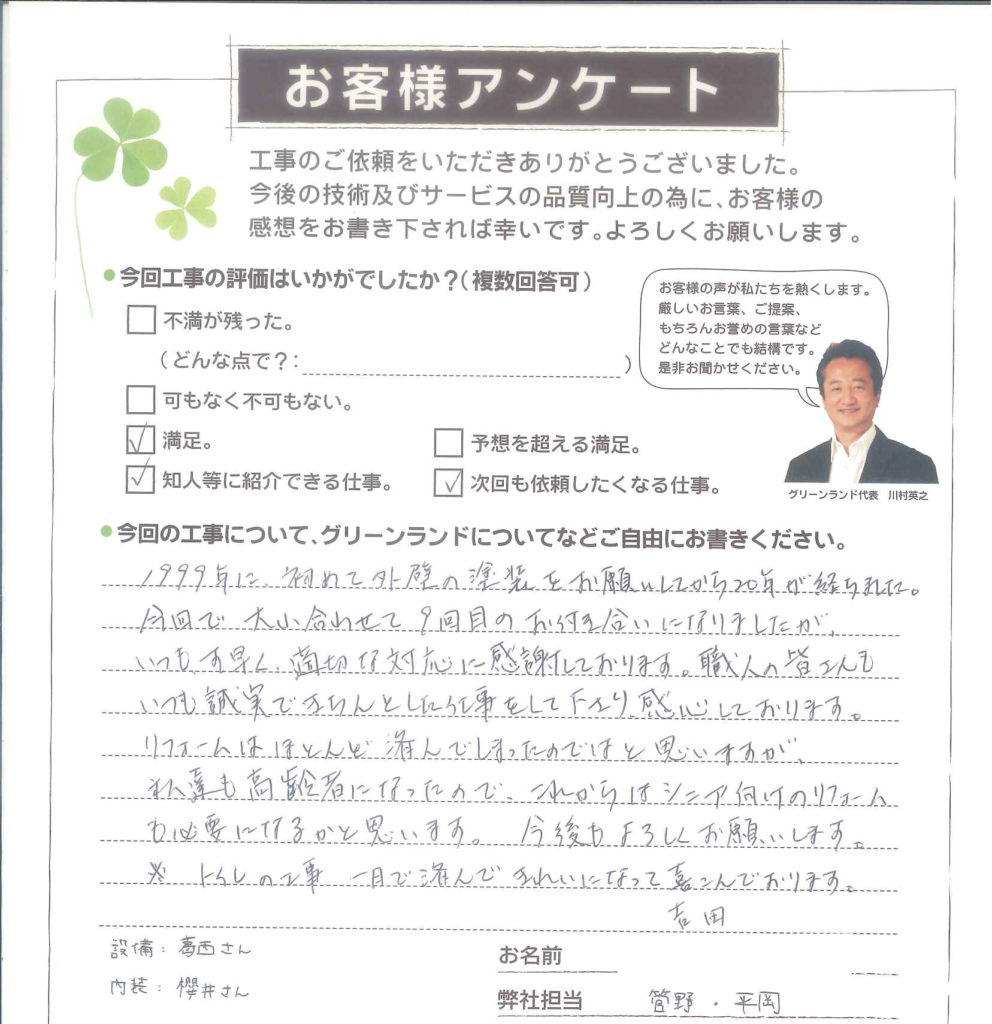 お客様アンケート
工事のご依頼をいただきありがとうございました。
今後の技術及びサービスの品質向上の為に、お客様の
感想をお書き下されば幸いです。よろしくお願いします。
●今回工事の評価はいかがでしたか？（複数回答可）
不満が残った。
（どんな点で？：　）
可もなく不可もない。
満足。
予想を超える満足。
知人等に紹介できる仕事。
次回も依頼したくなる仕事。
お客様の声が私たちを熱くします。
厳しいお言葉、ご提案、
もちろんお誉めの言葉など
どんなことでも結構です。
是非お聞かせください。
グリーンランド代表　川村英之
●今回の工事について、グリーンランドについてなどご自由にお書きください。
1999年に、初めて外壁の塗装をお願いしてから20年が経ちました。
今回で大小合わせて9回目のお付き合いになりましたが、
いつも、す早く、適切な対応に感謝しております。職人の皆さんも
いつも誠実できちんとした仕事をして下さり、感心しております。
リフォームはほとんど済んでしまったのではと思いますが、
私達も高齢者になったので、これからはシニア向けのリフォーム
も必要になるかと思います。　今後もよろしくお願いします。
※　トイレの工事　一日で済んできれいになって喜こんでおります。
吉田
設備：葛西さん
内装：櫻井さん
お名前
弊社担当　菅野・平岡